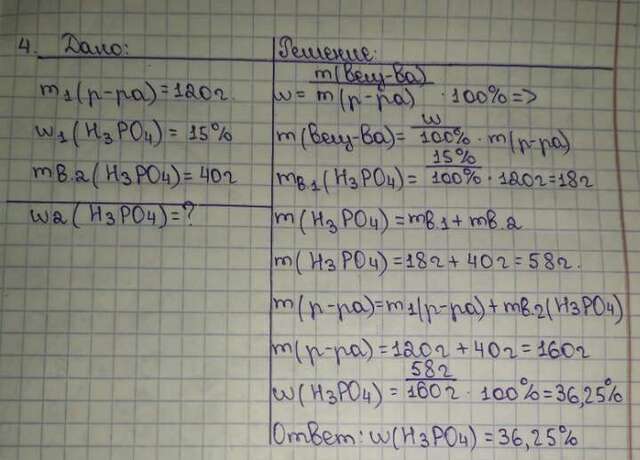 4. Дано:
m1(р-ра)=120г.
w1(H3PO4)=15%
mв.2(H3PO4)=40г
w2(H3PO4)=?
Решение:
w= m(вещ-ва)/m(р-ра) · 100% =>
m(вещ-ва)= w/100% · m(р-ра)
mв1(H3PO4)= 15%/100% · 120г=18г
m(H3PO4)=mв.1+mв.2
m(H3PO4)=18г+40г=58г.
m(р-ра)=m1(р-ра)+mв.2(H3PO4)
m(р-ра)=120г+40г=160г
w(H3PO4)= 58г/160г · 100%=36,25%
Ответ: w(H3PO4)=36,25%